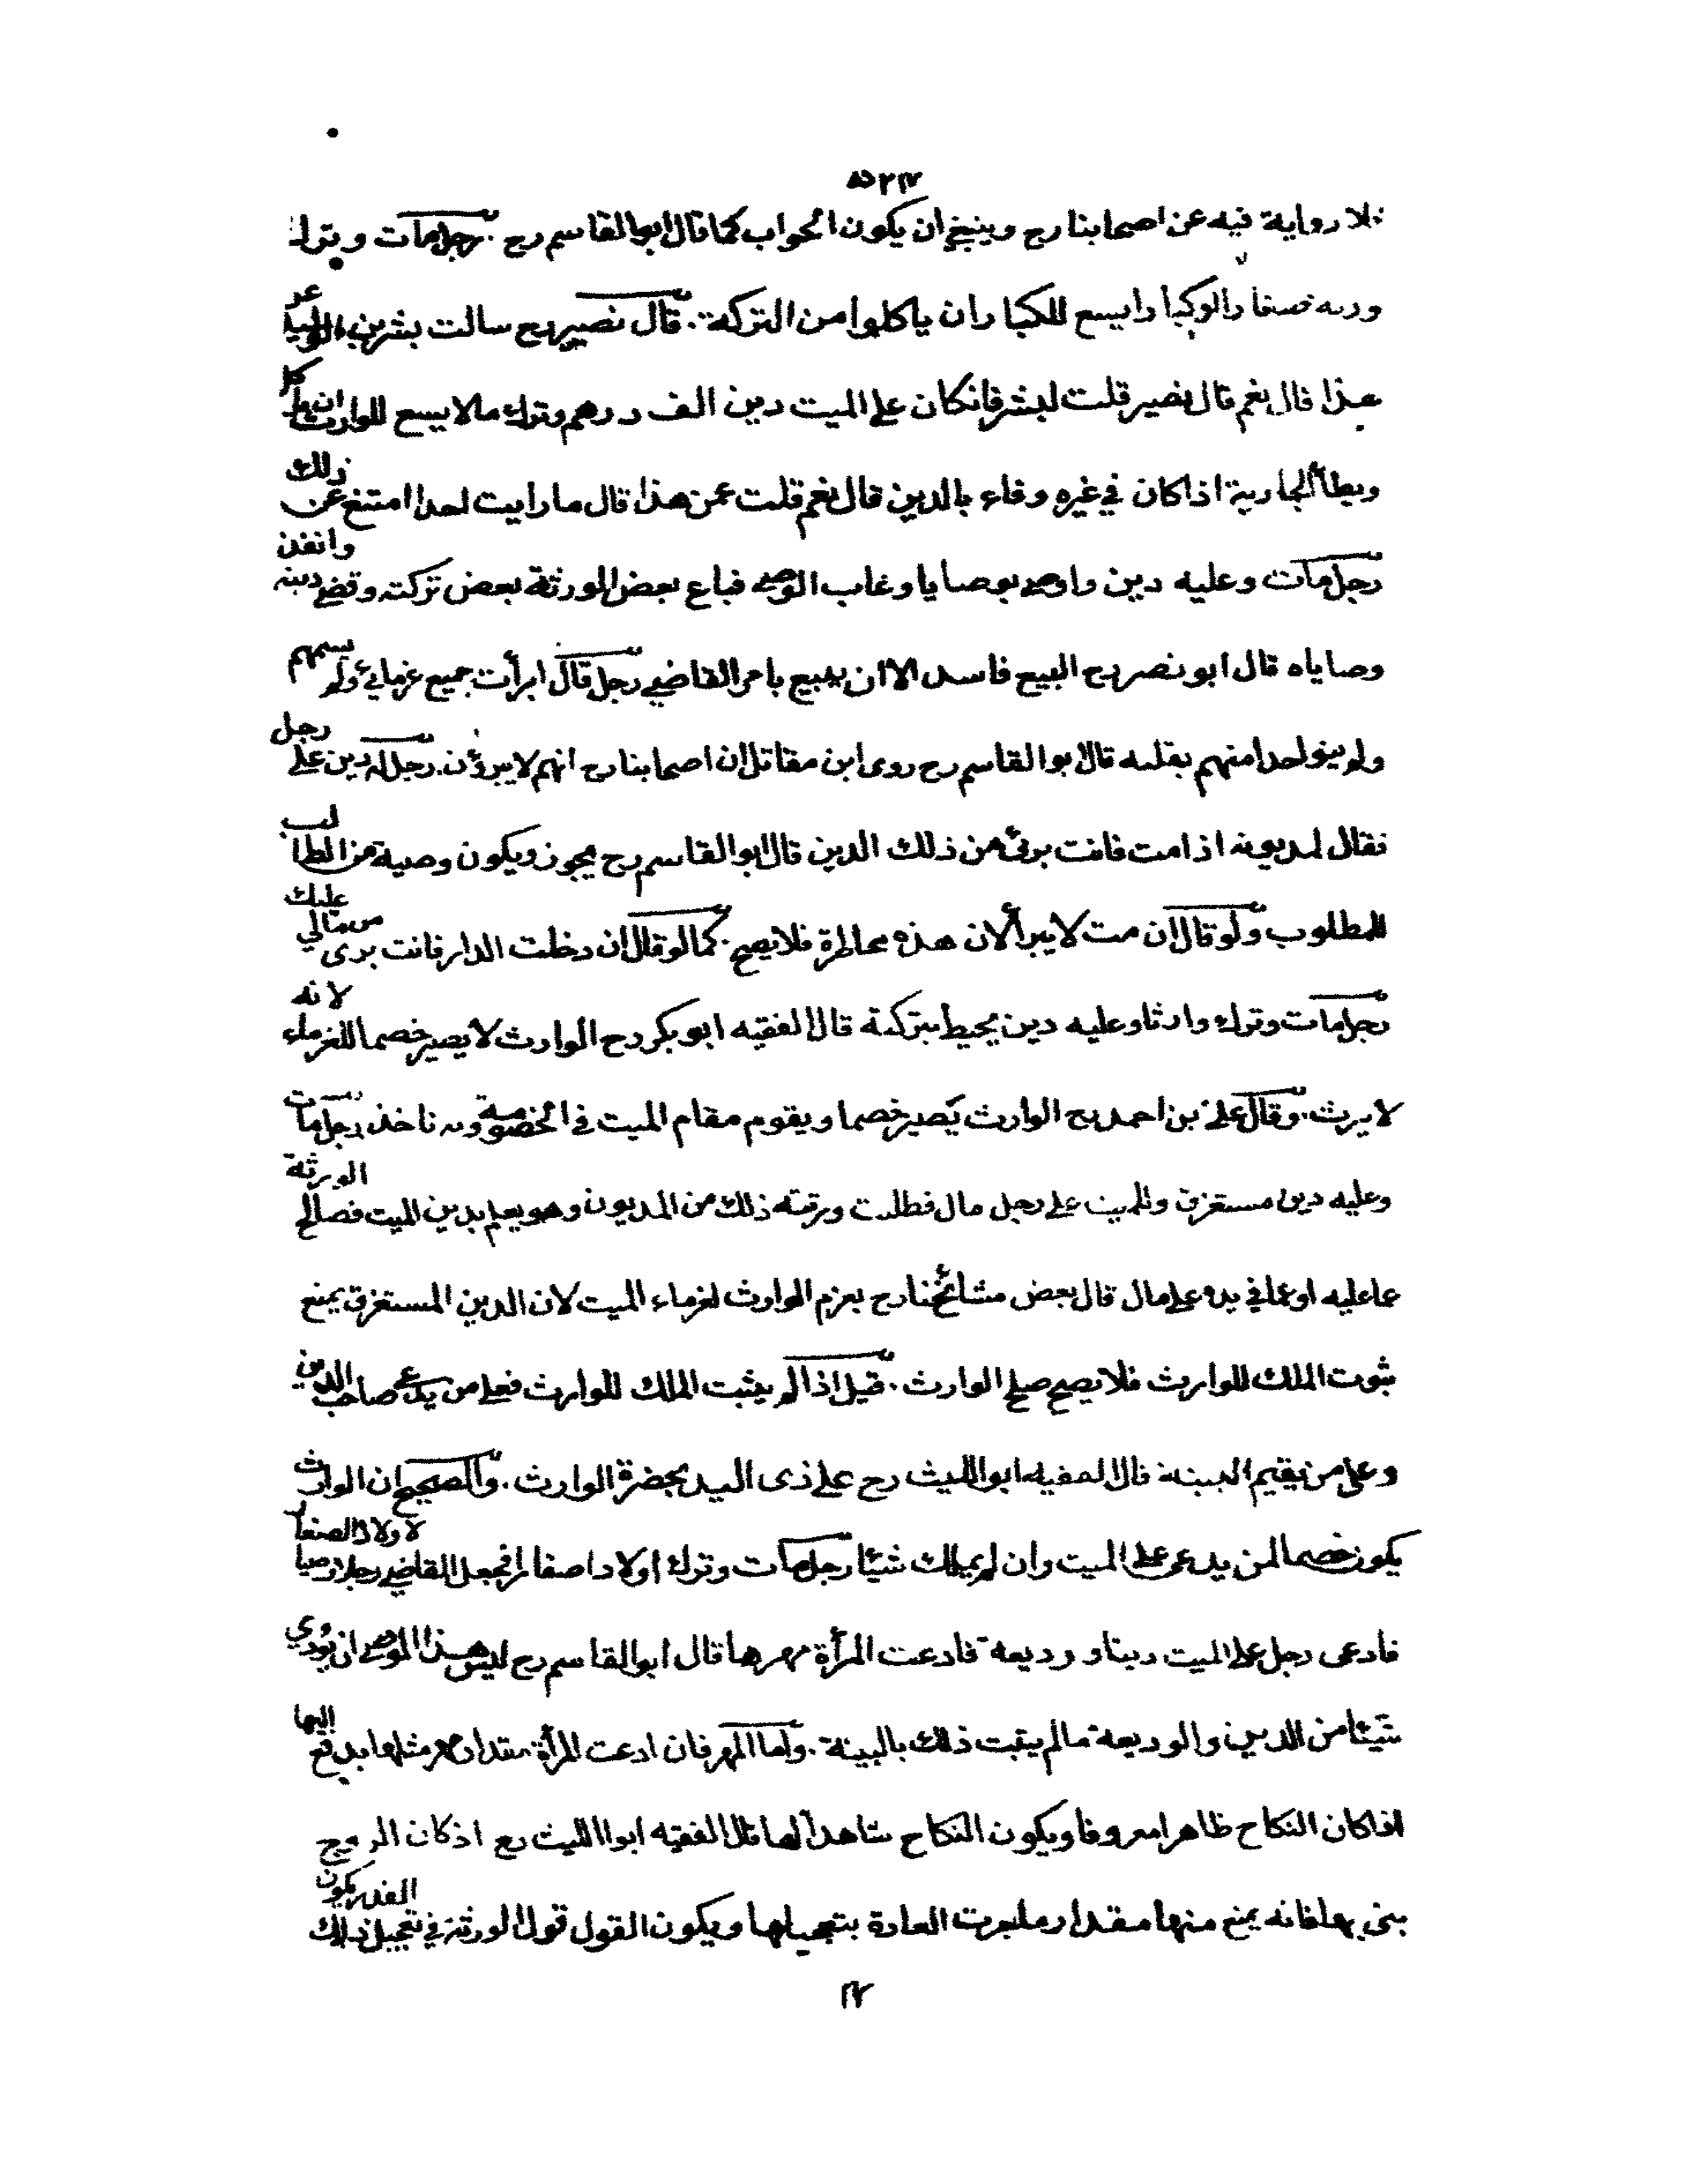 فلا رواية فيه عن اصحابنا رح وينبغي ان يكون الجواب كما قال ابو القاسم رح رجل مات وترك
ورثه صغارا وكبارا يسع للكبار ان ياكلوا من التركة قال نصير رح سالت بشر بن الوليد عن
هذا قال نعم قال نصير قلت لبشر فان كان على الميت دين الف درهم وترك مالا يسع للوارث ان ياكل
ويطأ الجارية اذا كان في غيره وفاء بالدين قال نعم قلت عمن هذا قال ما رايت احدا امتنع عن ذلك
رجل مات وعليه دين واوصى بوصايا وغاب الوصي فباع بعض الورثة بعض تركته وقضى دينه وانفذ
وصاياه قال ابو نصر رح البيع فاسد الا ان يبيع بامر القاضي رجل قال ابرأت جميع غرمائي ولم يسمهم
ولم ينو احدا منهم بقلبه قال ابو القاسم رح روى ابن مقاتل ان اصحابنا رح انهم لا يبرؤن رجل له دين على رجل
فقال لمديونه اذا مت فانت برئ من ذلك الدين قال ابو القاسم رح يجوز ويكون وصية من الطالب
للمطلوب ولو قال ان مت لا يبرأ لان هذه مخاطرة فلا يصح كما لو قال ان دخلت الدار فانت برى من مالي عليك
رجل مات وترك وارثا وعليه دين يحيط بتركته قال الفقيه ابو بكر رح الوارث لا يصير خصما للغرماء لانه
لا يرث وقال علي بن احمد رح الوارث يصير خصما ويقوم مقام الميت في الخصومة وبه ناخذ رجل مات
وعليه دين مستغرق وللميت على رجل مال فطلبت ورثته ذلك من المديون وهو يعلم بدين الميت فصالح الورثة
عما عليه او عما في يده على مال قال بعض مشائخنا رح يغرم الوارث لغرماء الميت لان الدين المستغرق يمنع
ثبوت الملك للوارث فلا يصح صلح الوارث قيل اذا لم يثبت الملك للوارث فعلى من يدعي صاحب الدين
وعلى من يقيم البينة قال الفقيه ابو الليث رح على ذى اليد بحضرة الوارث والصحيح ان الوارث
يكون خصما لمن يدعي على الميت وان لم يملك شيئا رجل مات وترك اولادا صغارا فجعل القاضي رجلا وصيا لاولاد الصغار
فادعى رجل على الميت دينا او وديعة فادعت المرأة مهرها قال ابو القاسم رح ليس هذا الموصى ان يؤدي
شيئا من الدين والوديعة مالم يثبت ذلك بالبينة واما المهر فان ادعت المرأة مقدار مهر مثلها يدفع اليها
اذا كان النكاح ظاهرا معروفا ويكون النكاح شاهدا لها قال الفقيه ابو الليث رح اذ كان الزوج
بنى بها فانه يمنع منها مقدار ما جرت العادة بتعجيلها ويكون القول قول الورثة في تعجيل ذلك القدر يكون